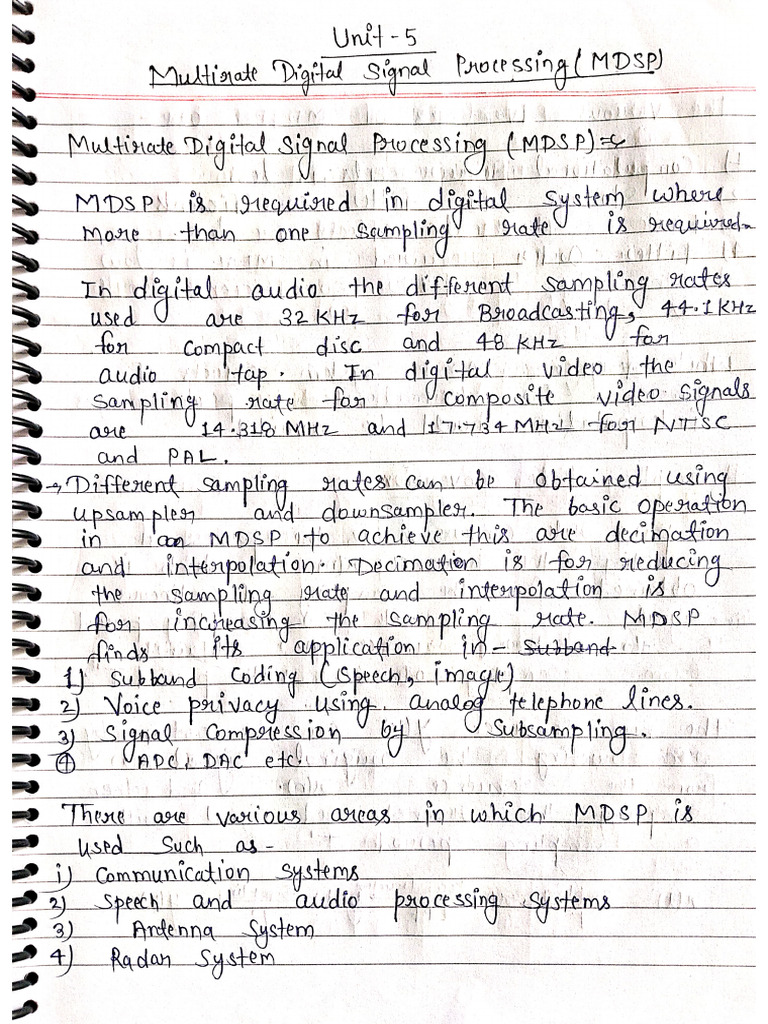 Unit-5
Multirate Digital Signal Processing (MDSP)
Multirate Digital Signal Processing (MDSP)⇒
MDSP is required in digital system where
more than one sampling rate is required
In digital audio the different sampling rates
used are 32 KHz for Broadcasting, 44.1 KHz
for compact disc and 48 KHz for
audio tap. In digital video the
sampling rate for composite video signals
are 14.318 MHz and 17.734 MHz for NTSC
and PAL.
→ Different sampling rates can be obtained using
upsampler and downsampler. The basic operation
in MDSP to achieve this are decimation
and interpolation. Decimation is for reducing
the sampling rate and interpolation is
for increasing the sampling rate. MDSP
finds its application in- Subband
1) Subband Coding (Speech, image)
2) Voice privacy using analog telephone lines.
3) Signal Compression by Subsampling.
④ ADC, DAC etc.
There are various areas in which MDSP is
used Such as-
1) Communication Systems
2) Speech and audio processing Systems
3) Antenna System
4) Radar System